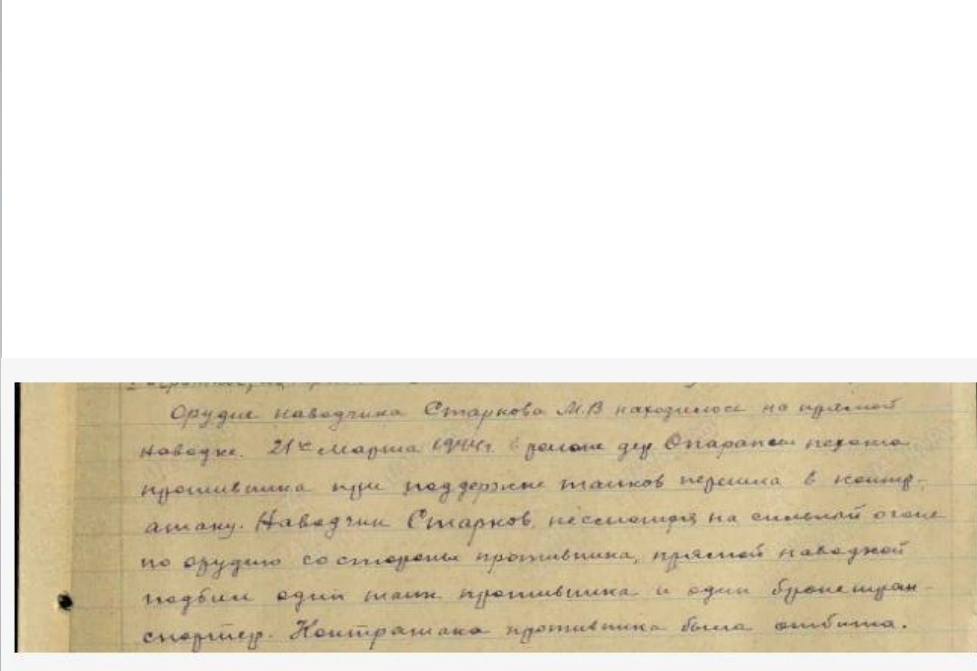 Орудие наводчика Старкова М.В находилось на прямой
наводке. 21го марта 1944г. в районе дер Опарапси пехота
противника при поддержке танков перешла в контр-
атаку. Наводчик Старков, несмотря на сильный огонь
по орудию со стороны противника, прямой наводкой
подбил один танк противника и один бронетран-
спортер. Контратака противника была отбита.